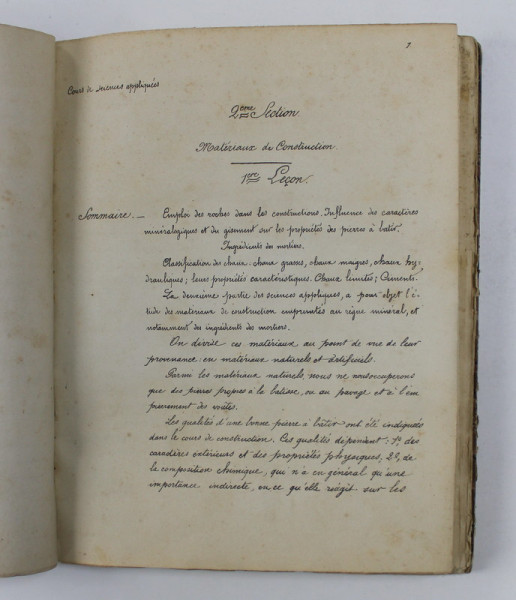 1
Cours de sciences appliquées
2ème Section
Matériaux de Construction.
1ère Leçon.
Sommaire. — Emploi des roches dans les constructions. Influence des caractères
minéralogiques et du gisement sur les propriétés des pierres à bâtir.
Ingrédients des mortiers.
Classification des chaux: chaux grasses, chaux maigres, chaux hy-
drauliques; leurs propriétés caractéristiques. Chaux limites; Ciments.
La deuxième partie des sciences appliques, a pour objet l'é-
tude des matériaux de construction empruntés au règne minéral, et
notamment des ingrédients des mortiers.
On divise ces matériaux au point de vue de leur
provenance: en matériaux naturels et artificiels.
Parmi les matériaux naturels, nous ne nous occuperons
que des pierres propres à la batisse, ou au pavage et à l'em
pierrement des voûtes.
Les qualités d'une bonne pierre à bâtir ont été indiquées
dans le cours de construction. Ces qualités dépendent: 1º, des
caractères extérieurs et des propriétés physiques, 2º, de
la composition chimique, qui n'a en général qu'une
importance indirecte, en ce qu'elle réagit sur les